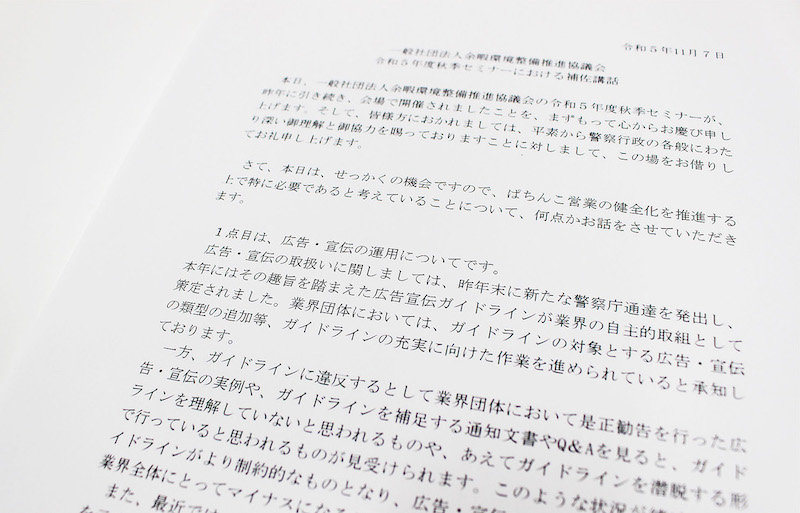 令和5年11月7日
一般社団法人余暇環境整備推進協議会
令和5年度秋季セミナーにおける補佐講話
本日、一般社団法人余暇環境整備推進協議会の令和5年度秋季セミナーが、
昨年に引き続き、会場で開催されましたことを、まずもって心からお慶び申し
上げます。そして、皆様方におかれましては、平素から警察行政の各般にわた
り深い御理解と御協力を賜っておりますことに対しまして、この場をお借りし
てお礼申し上げます。
さて、本日は、せっかくの機会ですので、ぱちんこ営業の健全化を推進する
上で特に必要であると考えていることについて、何点かお話をさせていただき
ます。
1点目は、広告・宣伝の運用についてです。
広告・宣伝の取扱いに関しましては、昨年末に新たな警察庁通達を発出し、
本年にはその趣旨を踏まえた広告宣伝ガイドラインが業界の自主的取組として
策定されました。業界団体においては、ガイドラインの対象とする広告・宣伝
の類型の追加等、ガイドラインの充実に向けた作業を進められていると承知し
ております。
一方、ガイドラインに違反するとして業界団体において是正勧告を行った広
告・宣伝の実例や、ガイドラインを補足する通知文書やQ&Aを見ると、ガイド
ラインを理解していないと思われるものや、あえてガイドラインを潜脱する形
で行っていると思われるものが見受けられます。このような状況が
イドラインがより制約的なものとなり、広告・宣
業界全体にとってマイナスになる
また、最近では